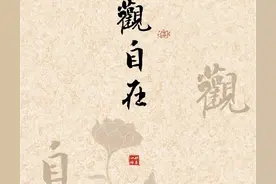 觀自在
觀
自